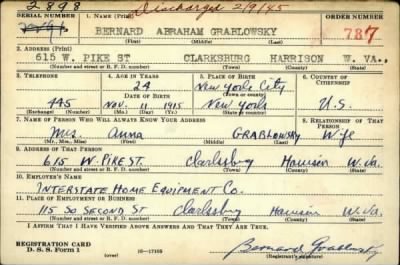 2898 Discharged 2/9/45
SERIAL NUMBER 1. NAME (Print) ORDER NUMBER
BERNARD ABRAHAM GRABLOWSKY 787
(First) (Middle) (Last)
2. ADDRESS (Print)
615 W. PIKE ST CLARKSBURG HARRISON W. VA.
(Number and street or R. F. D. number) (Town) (County) (State)
3. TELEPHONE 4. AGE IN YEARS 5. PLACE OF BIRTH 6. COUNTRY OF CITIZENSHIP
24 New York City
DATE OF BIRTH (Town or county)
445 Nov. 11 1915 New York U.S.
(Exchange) (Number) (Mo.) (Day) (Yr.) (State or country)
7. NAME OF PERSON WHO WILL ALWAYS KNOW YOUR ADDRESS 8. RELATIONSHIP OF THAT PERSON
Mrs. Anna GRABLOWSKY Wife
(Mr., Mrs., Miss) (First) (Middle) (Last)
9. ADDRESS OF THAT PERSON
615 W. PIKE ST. Clarksburg Harrison W. Va.
(Number and street or R. F. D. number) (Town) (County) (State)
10. EMPLOYER'S NAME
INTERSTATE HOME EQUIPMENT CO.
11. PLACE OF EMPLOYMENT OR BUSINESS
115 SO SECOND ST Clarksburg Harrison W. Va.
(Number and street or R. F. D. number) (Town) (County) (State)
I AFFIRM THAT I HAVE VERIFIED ABOVE ANSWERS AND THAT THEY ARE TRUE.
REGISTRATION CARD
D. S. S. Form 1 (over) 16—17105 Bernard Grablowsky
(Registrant's signature)